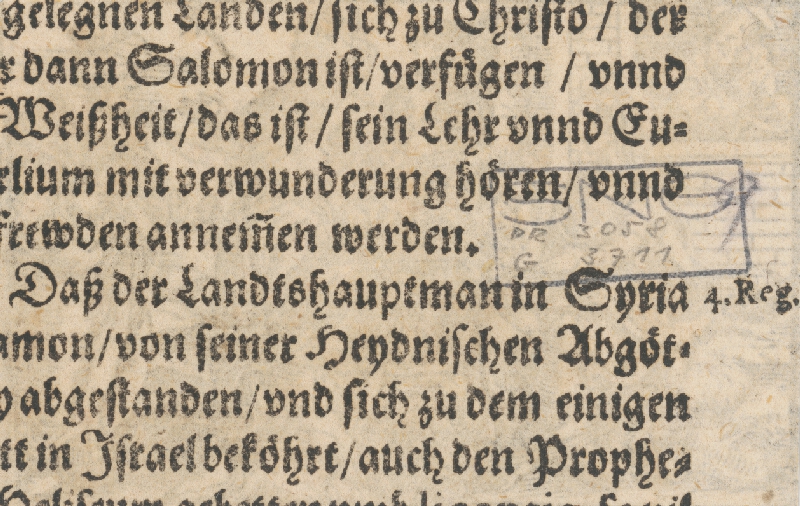 gelegnen Landen/ sich zu Christo / der
dann Salomon ist/verfügen / vnnd
Weißheit/das ist / sein Lehr vnnd Eu-
lium mit verwunderung hören/ vnnd
frewden annem̃en werden.
DR 3058
G 3711
Daß der Landtshauptman in Syria 4. Reg.
amon/von seiner Heydnischen Abgöt-
abgestanden/vnd sich zu dem einigen
tt in Jsrael beköhrt/auch den Prophe-